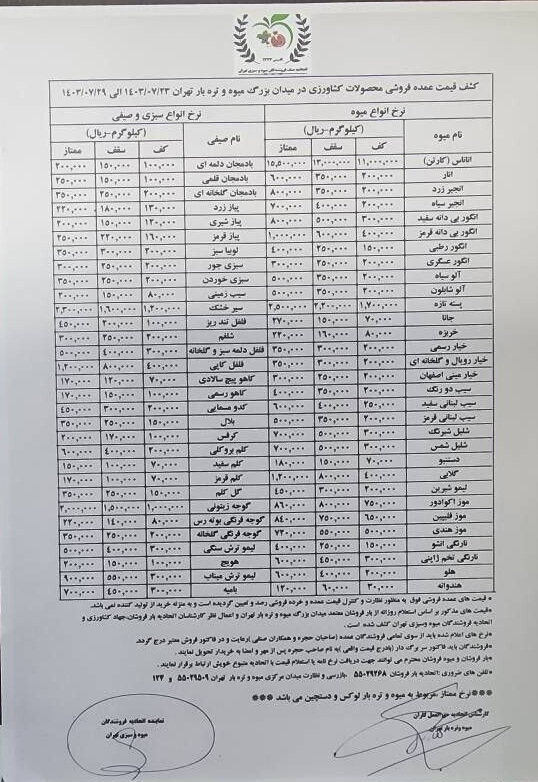 کشف قیمت عمده فروشی محصولات کشاورزی در میدان بزرگ میوه و تره بار تهران ۱۴۰۳/۰۷/۲۳ الی ۱۴۰۳/۰۷/۲۹
نرخ انواع میوه نرخ انواع سبزی و صیفی
نام میوه (کیلوگرم-ریال) نام صیفی (کیلوگرم-ریال)
کف سقف ممتاز کف سقف ممتاز
آناناس (کارتن) ۱۱,۰۰۰,۰۰۰ ۱۳,۰۰۰,۰۰۰ ۱۵,۵۰۰,۰۰۰ بادمجان دلمه ای ۱۰۰,۰۰۰ ۱۵۰,۰۰۰ ۲۰۰,۰۰۰
انار ۲۰۰,۰۰۰ ۳۵۰,۰۰۰ ۶۰۰,۰۰۰ بادمجان قلمی ۱۰۰,۰۰۰ ۱۵۰,۰۰۰ ۲۵۰,۰۰۰
انجیر زرد ۲۰۰,۰۰۰ ۳۵۰,۰۰۰ ۸۰۰,۰۰۰ بادمجان گلخانه ای ۲۰۰,۰۰۰ ۲۵۰,۰۰۰ ۳۵۰,۰۰۰
انجیر سیاه ۲۰۰,۰۰۰ ۴۰۰,۰۰۰ ۷۰۰,۰۰۰ پیاز زرد ۱۳۰,۰۰۰ ۱۸۰,۰۰۰ ۲۲۰,۰۰۰
انگور بی دانه سفید ۳۰۰,۰۰۰ ۵۰۰,۰۰۰ ۸۰۰,۰۰۰ پیاز شیری ۱۲۰,۰۰۰ ۱۵۰,۰۰۰ ۲۰۰,۰۰۰
انگور بی دانه قرمز ۴۰۰,۰۰۰ ۶۰۰,۰۰۰ ۱,۰۰۰,۰۰۰ پیاز قرمز ۱۶۰,۰۰۰ ۲۲۰,۰۰۰ ۲۵۰,۰۰۰
انگور رطبی ۱۵۰,۰۰۰ ۲۵۰,۰۰۰ ۴۰۰,۰۰۰ لوبیا سبز ۲۰۰,۰۰۰ ۳۰۰,۰۰۰ ۳۵۰,۰۰۰
انگور عسگری ۲۰۰,۰۰۰ ۲۵۰,۰۰۰ ۳۰۰,۰۰۰ سبزی جور ۲۰۰,۰۰۰ ۲۵۰,۰۰۰ ۳۰۰,۰۰۰
آلو سیاه ۲۰۰,۰۰۰ ۳۵۰,۰۰۰ ۵۰۰,۰۰۰ سبزی خوردن ۲۰۰,۰۰۰ ۲۵۰,۰۰۰ ۳۵۰,۰۰۰
آلو شابلون ۲۰۰,۰۰۰ ۳۵۰,۰۰۰ ۵۰۰,۰۰۰ سیب زمینی ۸۰,۰۰۰ ۱۵۰,۰۰۰ ۲۰۰,۰۰۰
پسته تازه ۱,۷۰۰,۰۰۰ ۲,۲۰۰,۰۰۰ ۲,۵۰۰,۰۰۰ سیر خشک ۱,۲۰۰,۰۰۰ ۱,۶۰۰,۰۰۰ ۲,۳۰۰,۰۰۰
جانا ۷۰,۰۰۰ ۱۵۰,۰۰۰ ۲۷۰,۰۰۰ فلفل تند ریز ۱۰۰,۰۰۰ ۲۰۰,۰۰۰ ۴۵۰,۰۰۰
خربزه ۸۰,۰۰۰ ۱۶۰,۰۰۰ ۲۲۰,۰۰۰ شلغم ۲۰۰,۰۰۰ ۲۵۰,۰۰۰ ۳۰۰,۰۰۰
خیار رسمی ۲۰۰,۰۰۰ ۳۰۰,۰۰۰ ۳۵۰,۰۰۰ فلفل دلمه سبز و گلخانه ۳۰۰,۰۰۰ ۴۰۰,۰۰۰ ۵۰۰,۰۰۰
خیار رویال و گلخانه ای ۲۰۰,۰۰۰ ۳۰۰,۰۰۰ ۳۵۰,۰۰۰ فلفل کاپی ۴۰۰,۰۰۰ ۸۰۰,۰۰۰ ۱,۲۰۰,۰۰۰
خیار مینی اصفهان ۲۰۰,۰۰۰ ۲۵۰,۰۰۰ ۳۰۰,۰۰۰ کاهو پیچ سالادی ۷۰,۰۰۰ ۱۲۰,۰۰۰ ۱۷۰,۰۰۰
سیب دو رنگ ۲۰۰,۰۰۰ ۳۵۰,۰۰۰ ۴۰۰,۰۰۰ کاهو رسمی ۱۰۰,۰۰۰ ۱۵۰,۰۰۰ ۱۷۰,۰۰۰
سیب لبنانی سفید ۲۵۰,۰۰۰ ۴۰۰,۰۰۰ ۶۰۰,۰۰۰ کدو مسمایی ۲۰۰,۰۰۰ ۳۰۰,۰۰۰ ۴۵۰,۰۰۰
سیب لبنانی قرمز ۲۰۰,۰۰۰ ۳۵۰,۰۰۰ ۵۰۰,۰۰۰ بلال ۱۵۰,۰۰۰ ۲۵۰,۰۰۰ ۳۵۰,۰۰۰
شلیل شبرنگ ۳۰۰,۰۰۰ ۵۰۰,۰۰۰ ۷۰۰,۰۰۰ کرفس ۱۰۰,۰۰۰ ۱۷۰,۰۰۰ ۲۰۰,۰۰۰
شلیل شمس ۳۰۰,۰۰۰ ۵۰۰,۰۰۰ ۷۰۰,۰۰۰ کلم بروکلی ۲۰۰,۰۰۰ ۴۰۰,۰۰۰ ۶۰۰,۰۰۰
دستنبو ۷۰,۰۰۰ ۱۵۰,۰۰۰ ۱۸۰,۰۰۰ کلم سفید ۷۰,۰۰۰ ۱۰۰,۰۰۰ ۱۵۰,۰۰۰
گلابی ۴۰۰,۰۰۰ ۸۰۰,۰۰۰ ۱,۲۰۰,۰۰۰ کلم قرمز ۷۰,۰۰۰ ۱۰۰,۰۰۰ ۱۷۰,۰۰۰
لیمو شیرین ۲۰۰,۰۰۰ ۳۰۰,۰۰۰ ۴۵۰,۰۰۰ گل کلم ۱۵۰,۰۰۰ ۲۵۰,۰۰۰ ۳۵۰,۰۰۰
موز اکوادور ۷۵۰,۰۰۰ ۸۰۰,۰۰۰ ۸۶۰,۰۰۰ گوجه زیتونی ۱,۰۰۰,۰۰۰ ۱,۵۰۰,۰۰۰ ۲,۰۰۰,۰۰۰
موز فلیپین ۶۵۰,۰۰۰ ۷۵۰,۰۰۰ ۸۴۰,۰۰۰ گوجه فرنگی بوته رس ۸۰,۰۰۰ ۱۴۰,۰۰۰ ۲۲۰,۰۰۰
موز هندی ۵۰۰,۰۰۰ ۵۵۰,۰۰۰ ۷۲۰,۰۰۰ گوجه فرنگی گلخانه ۲۰۰,۰۰۰ ۲۵۰,۰۰۰ ۳۵۰,۰۰۰
نارنگی انشو ۱۵۰,۰۰۰ ۲۵۰,۰۰۰ ۴۰۰,۰۰۰ لیمو ترش سنگی ۳۰۰,۰۰۰ ۴۰۰,۰۰۰ ۵۰۰,۰۰۰
نارنگی تخم ژاپنی ۳۰۰,۰۰۰ ۴۰۰,۰۰۰ ۶۰۰,۰۰۰ هویج ۱۰۰,۰۰۰ ۱۵۰,۰۰۰ ۲۰۰,۰۰۰
هلو ۲۰۰,۰۰۰ ۴۰۰,۰۰۰ ۶۰۰,۰۰۰ لیمو ترش میناب ۳۰۰,۰۰۰ ۵۵۰,۰۰۰ ۹۰۰,۰۰۰
هندوانه ۳۰,۰۰۰ ۶۰,۰۰۰ ۱۲۰,۰۰۰ بامیه ۳۰۰,۰۰۰ ۴۵۰,۰۰۰ ۷۰۰,۰۰۰
* قیمت های عمده فروشی فوق به منظور نظارت و کنترل قیمت عمده و خرده فروشی رصد و تعیین گردیده است و به منزله خرید از تولید کننده نمی باشد.
* قیمت های مذکور بر اساس استعلام روزانه از بار فروشان معتمد میدان بزرگ میوه و تره بار تهران و اعمال نظر کارشناسان اتحادیه بار فروشان،جهاد کشاورزی و
اتحادیه فروشندگان میوه وسبزی تهران کشف شده است.
* نرخ های اعلام شده باید از سوی تمامی فروشندگان عمده (صاحبان حجره و همکاران صیفی )رعایت و در فاکتور فروش معتبر درج گردد.
* فروشندگان باید فاکتور سر برگ دار (بادرج قیمت واقعی )به نام صاحب حجره پس از مهر و امضا به خریدار تحویل نمایند.
* بار فروشان و میوه فروشان محترم می توانند جهت دریافت نرخ نامه یا استعلام قیمت با اتحادیه متبوع خویش ارتباط برقرار نمایند.
* تلفن های ضروری : اتحادیه بار فروشان ۵۵۰۲۹۲۶۸ بازرسی و نظارت میدان مرکزی میوه و تره بار تهران ۵۵۰۲۹۵۰۹ و ۱۲۴
***نرخ ممتاز مربوط به میوه و تره بار لوکس و دستچین می باشد ***
نماینده اتحادیه فروشندگان
میوه و سبزی تهران
میوه وتره بار تهران